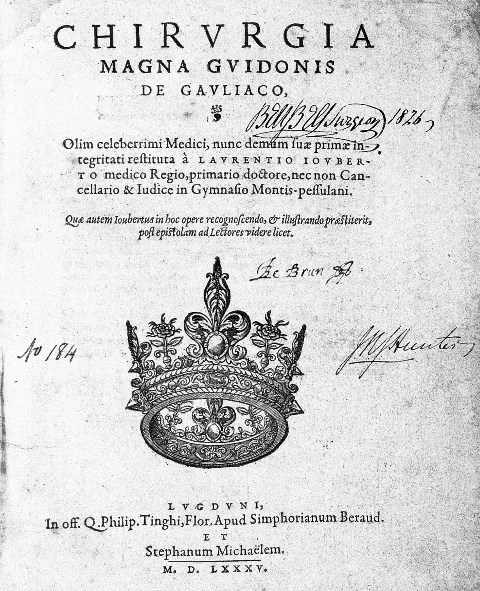 CHIRVRGIA
MAGNA GVIDONIS
DE GAVLIACO,
Surgeon 1826
Olim celeberrimi Medici, nunc demum ſuæ primæ in-
tegritati reſtituta à LAVRENTIO IOVBER-
TO medico Regio, primario doctore, nec non Can-
cellario & Iudice in Gymnaſio Montis-peſſulani.
Quæ autem Ioubertus in hoc opere recognoſcendo, & illuſtrando præſtiterit,
poſt epiſtolam ad Lectores videre licet.
Le Brun
No 184
Hunter
LVGDVNI,
In off. Q. Philip. Tinghi, Flor. Apud Simphorianum Beraud.
ET
Stephanum Michaëlem.
M. D. LXXXV.